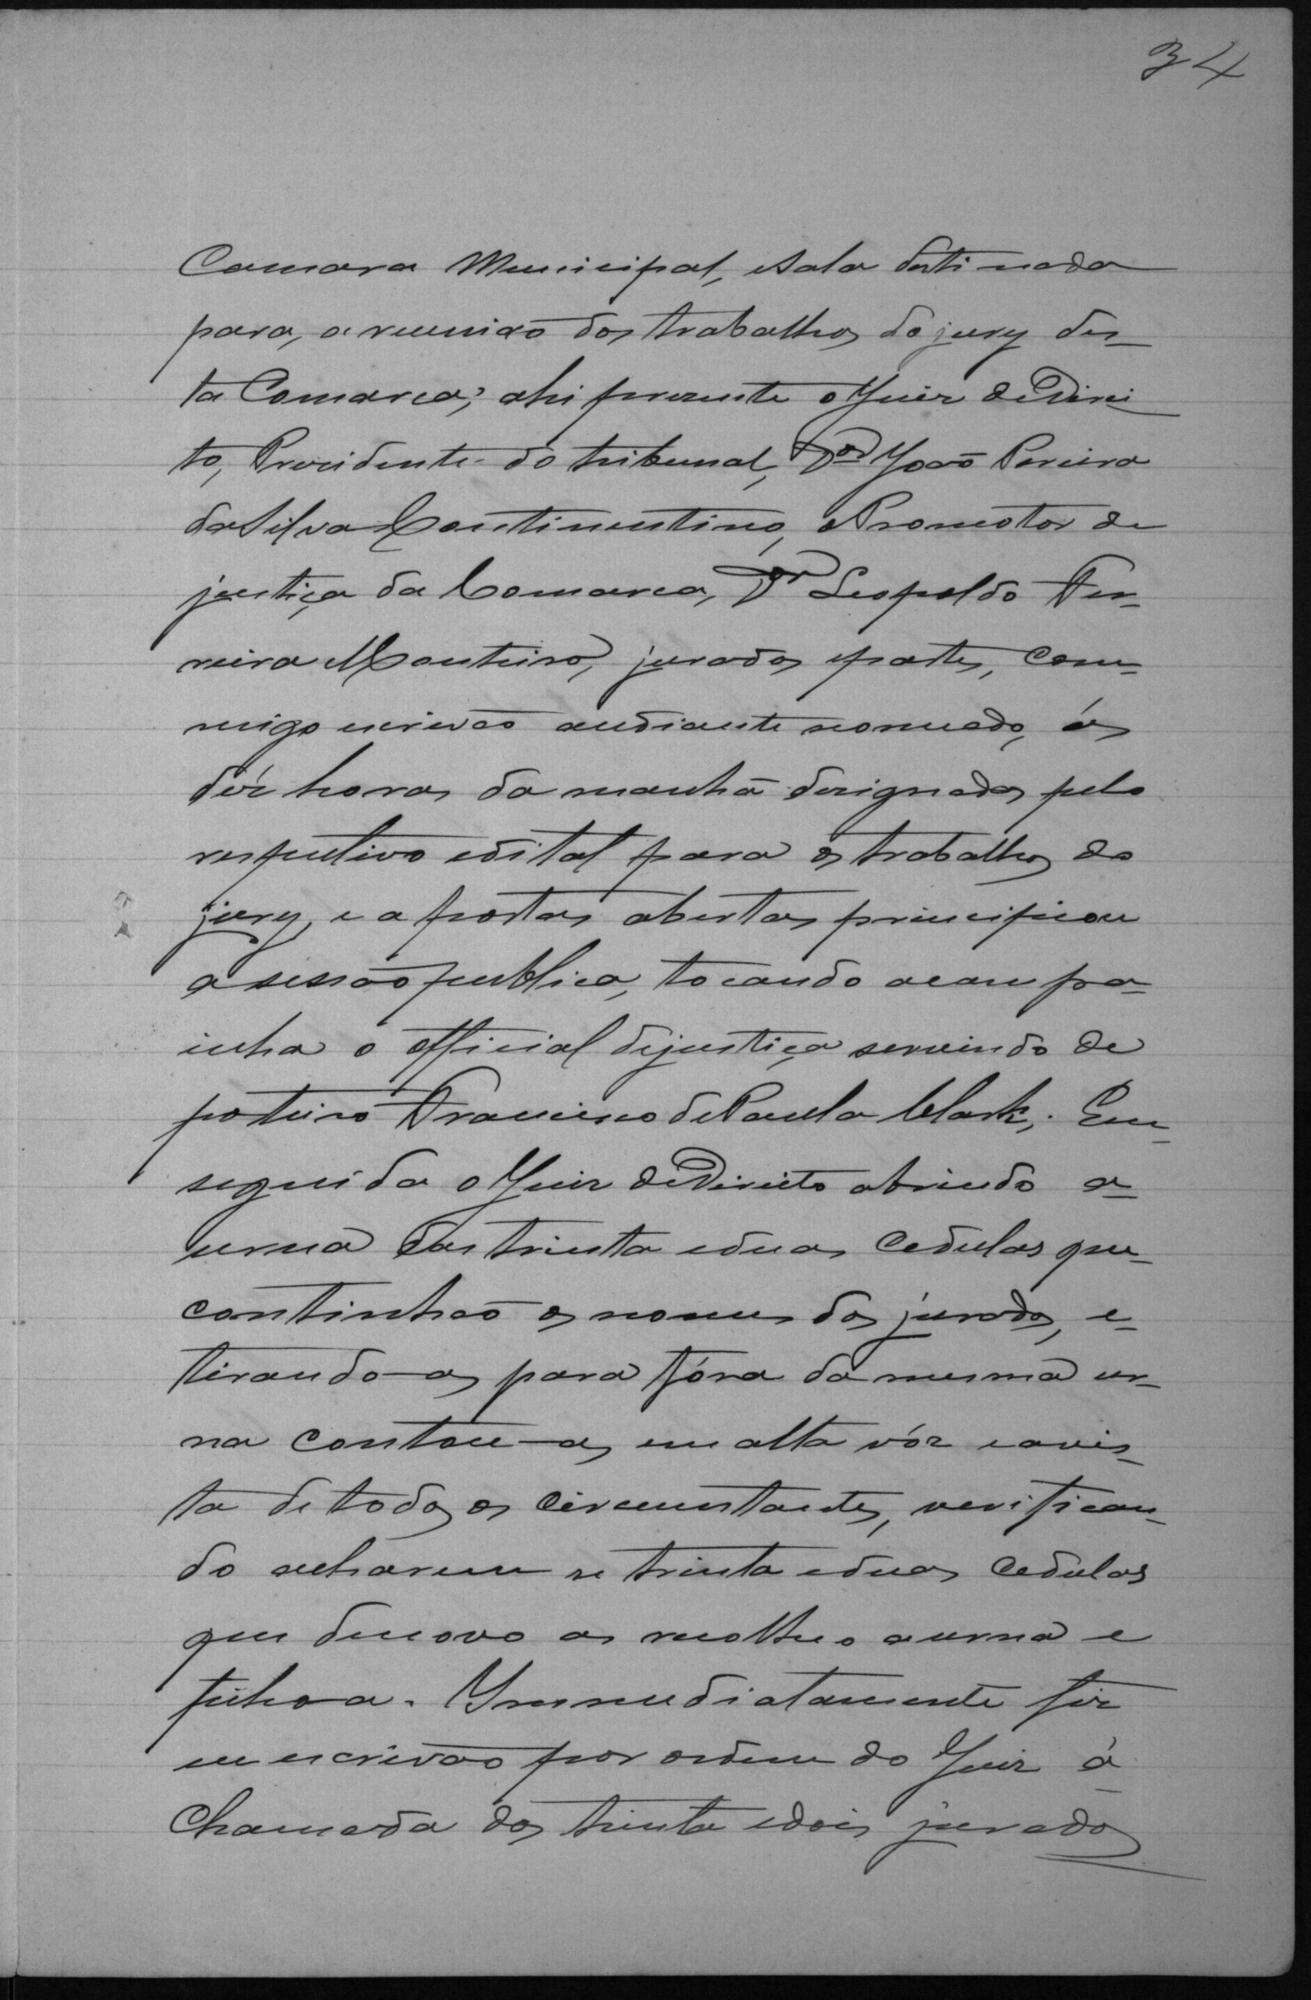 34
Camara Municipal, esala destinada
para, a reunião dos trabalhos do jury des-
ta Comarca; ahi presente o Juiz de Direi
to, Presidente do tribunal, Dor João Pereira
da Silva Continentino, o Promotor de
justiça da Comarca, Dr Leopoldo Fer-
reira Monteiro, jurados epartes, com-
migo escrivão audiante nomeado, ás
déz horas da manhã designadas pelo
respectivo edital para os trabalhos do
jury, e a portas abertas principiou
a sessão publica, tocando acampa-
inha o official dejustiça servindo de
porteiro Francisco de Paula Clark,. Em-
seguida o Juiz de Direito abrindo a-
urna das trinta eduas cedulas que-
continhão os nomes dos jurados, e-
tirando-as para fóra da mesma ur-
na contou-as em alta vóz eavis-
ta de todos os circunstantes, verifican-
do acharem se trinta eduas cedulas
que denovo as recolheo aurna e
fichou-a. Immediatamente fiz
eu escrivão por ordem do Juiz á
chamada dos trinta edois jurados